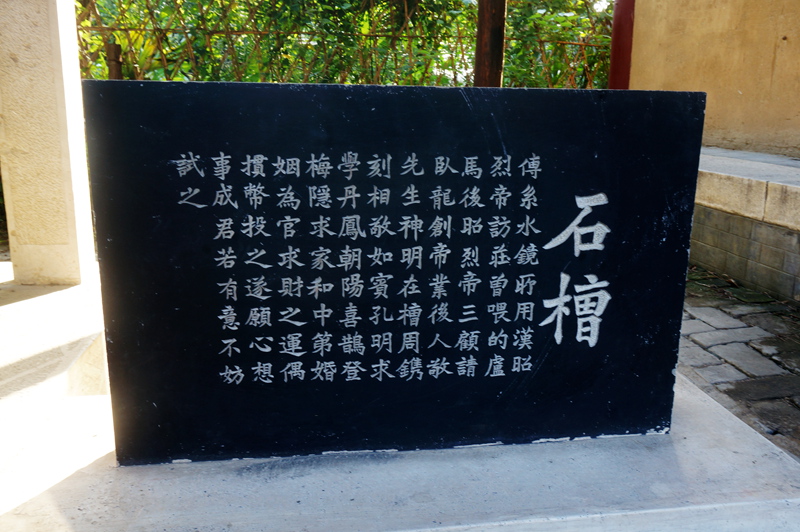 石槽
傳系水鏡所用漢昭
烈帝訪莊曾喂的盧
馬後昭烈帝三顧請
臥龍創帝業後人敬
先生神明在槽周鐫
刻相敬如賓孔明求
學丹鳳朝陽喜鵲登
梅隱求家和中第婚
姻為官求財之運偶
摜幣投之遂願心想
事成君若有意不妨
試之